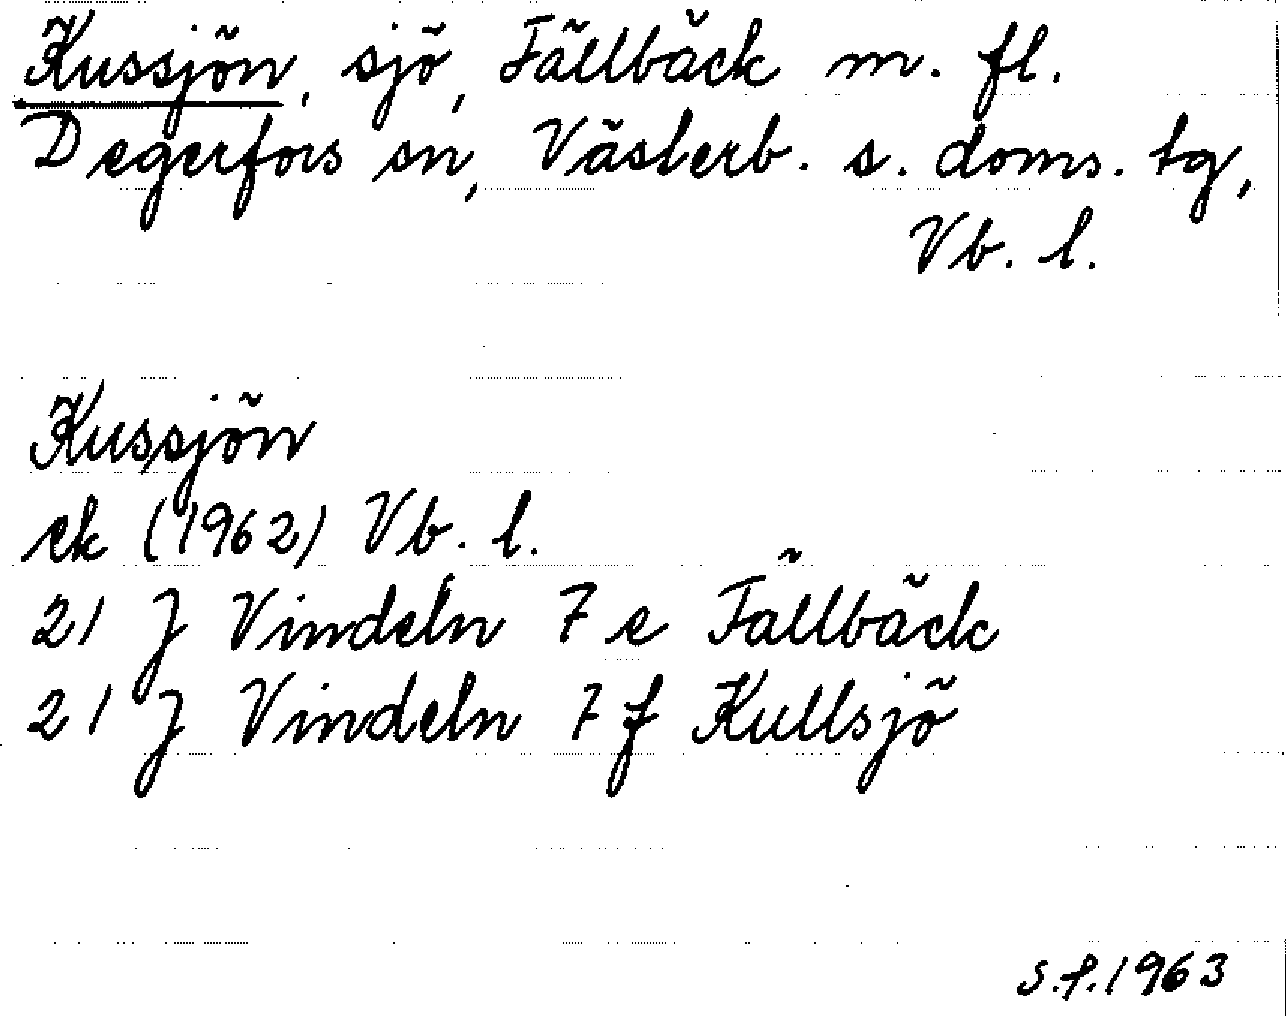 Kussjön, sjö, Fällbäck m. fl.
Degerfors sn, Västerb. s. doms. tg,
Vb. l.
Kussjön
ek (1962) Vb. l.
21 J Vindeln 7 e Fällbäck
21 J Vindeln 7 f Kullsjö
S.f. 1963